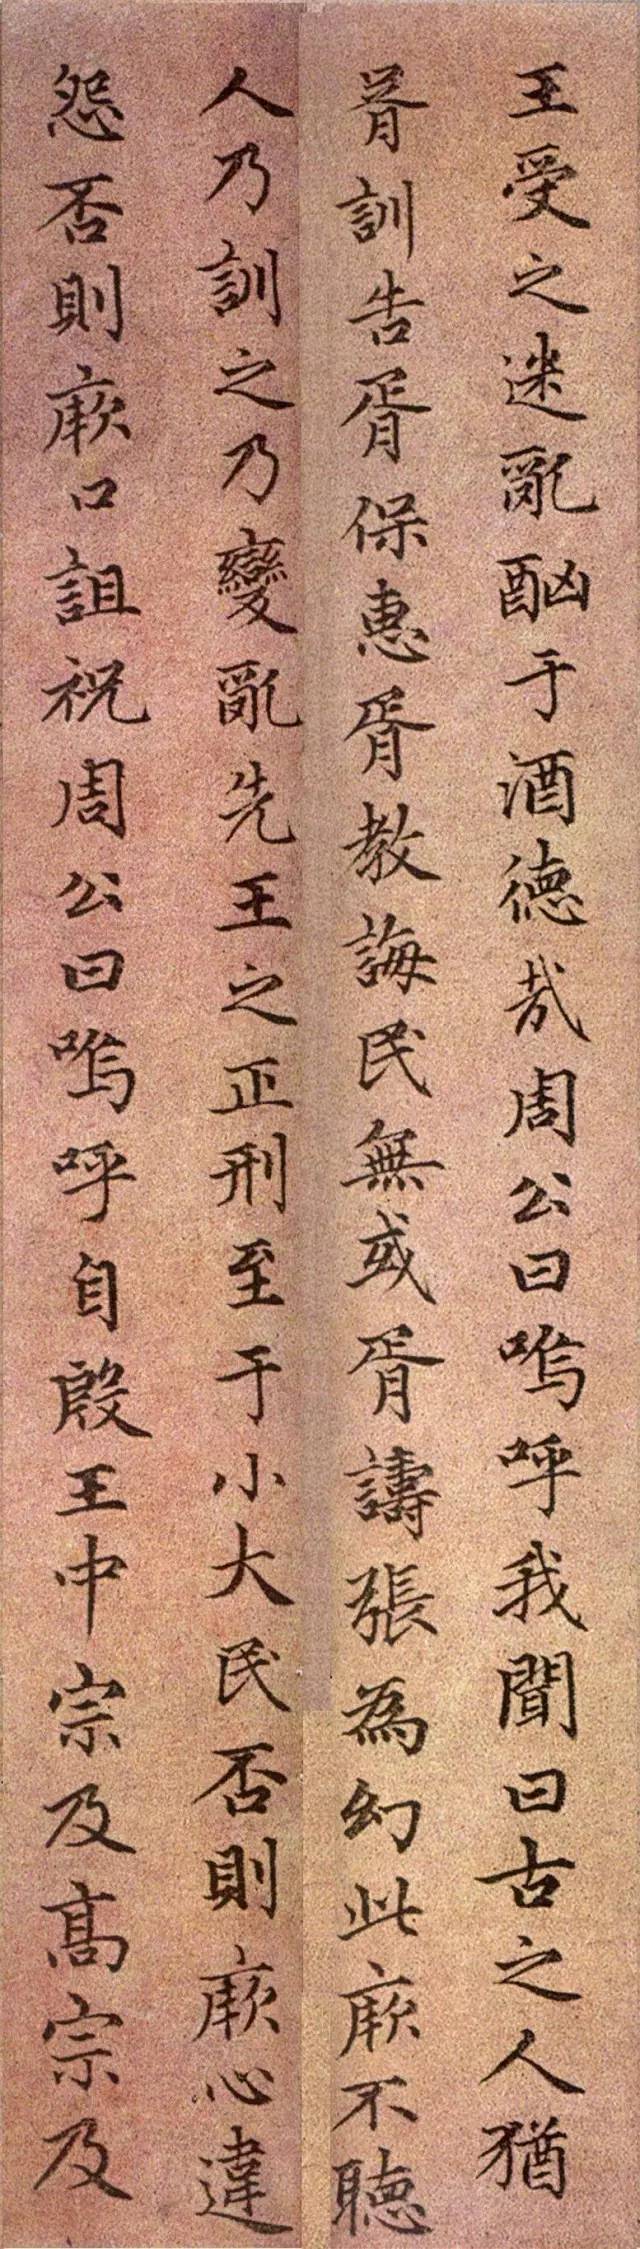 王受之迷亂酗于酒德哉周公曰嗚呼我聞曰古之人猶
胥訓告胥保惠胥教誨民無或胥譸張為幻此厥不聽
人乃訓之乃變亂先王之正刑至于小大民否則厥心違
怨否則厥口詛祝周公曰嗚呼自殷王中宗及高宗及